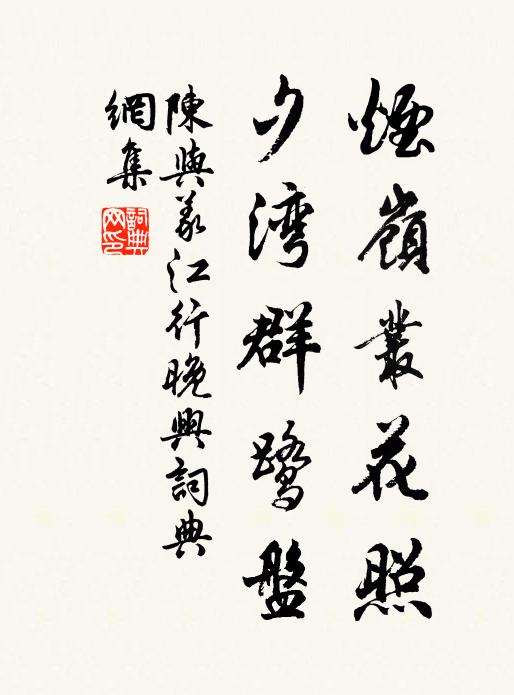 煙嶺叢花照
夕湾群鷺盤
陳與義江行晚興詞典
網集
詞典網印